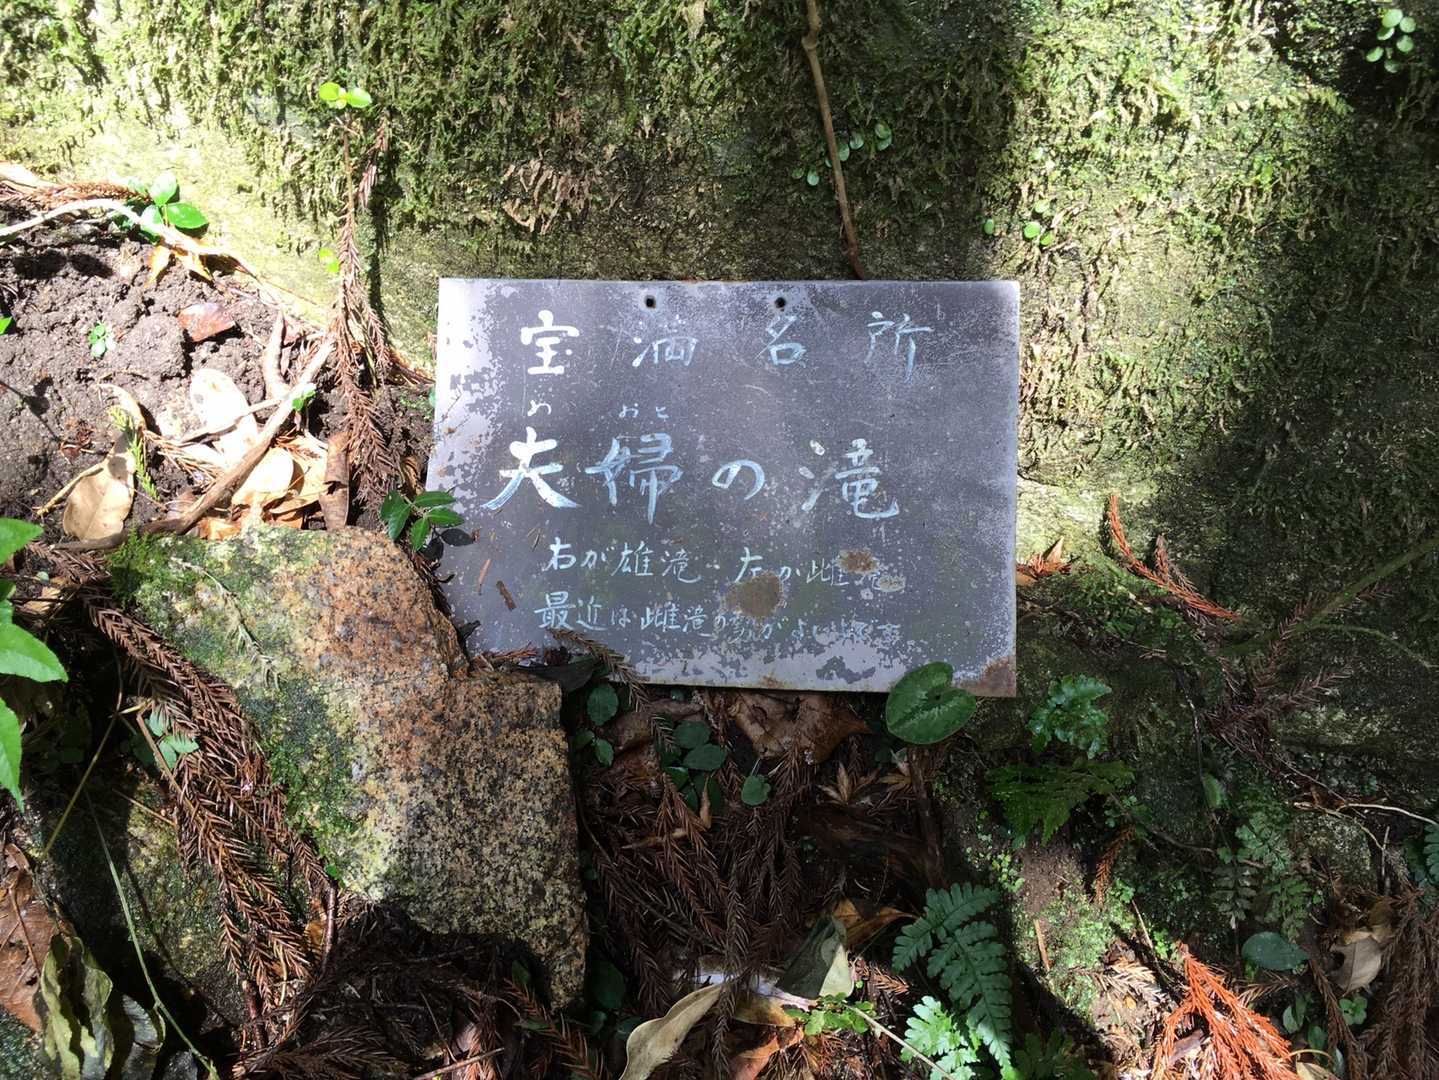 宝満名所
め おと
夫婦の滝
右が雄滝・左が雌滝
最近は雌滝の方がよい